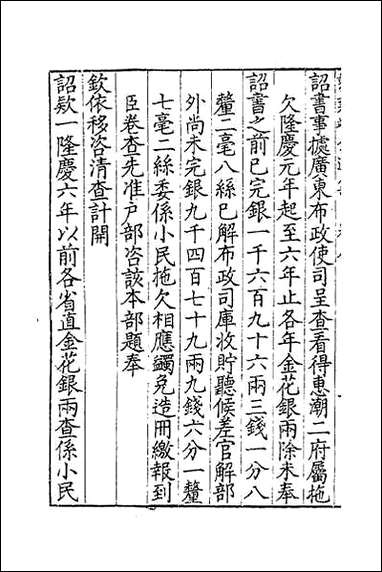 詔書事據廣東布政使司呈查看得惠潮二府屬拖
欠隆慶元年起至六年止各年金花銀兩除未奉
詔書之前已完銀一千六百九十六兩三錢一分八
釐二毫八絲已解布政司庫收貯聽候差官解部
外尚未完銀九千四百七十九兩九錢六分一釐
七毫二絲委係小民拖欠相應蠲免造冊繳報到
臣卷查先准戶部咨該本部題奉
欽依移咨清查計開
詔欵一隆慶六年以前各省直金花銀兩查係小民